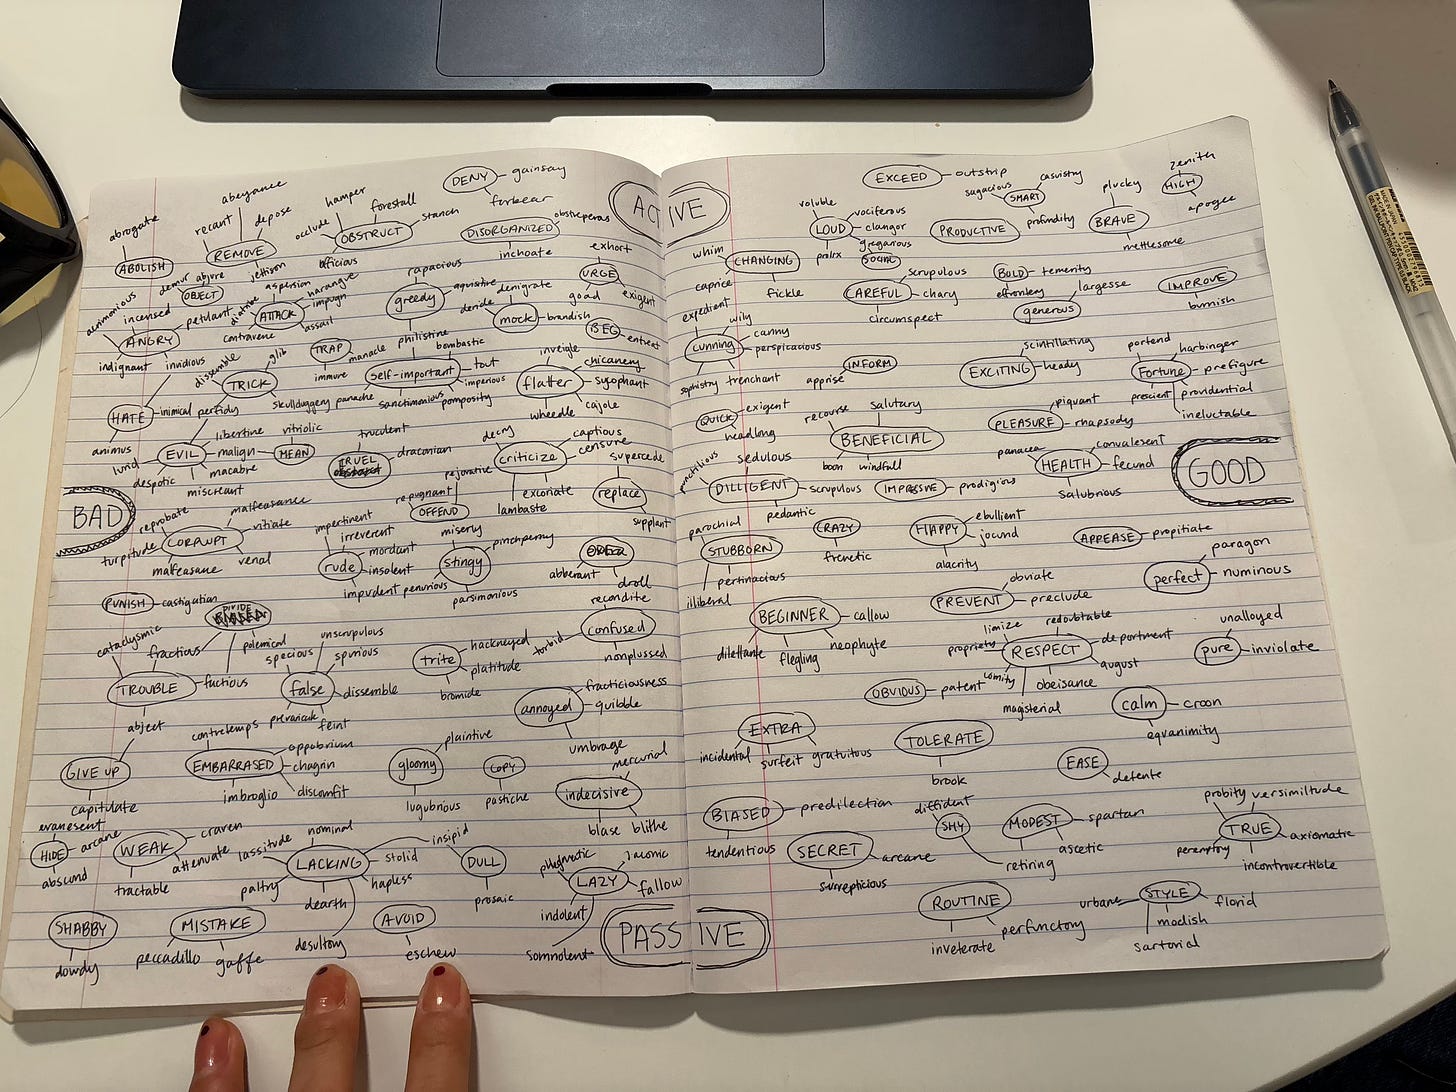 ACTIVE
DENY
gainsay
forbear
abrogate
ABOLISH
abeyance
recant
depose
REMOVE
jettison
hamper
forestall
stanch
occlude
OBSTRUCT
officious
DISORGANIZED
obstreperous
inchoate
exhort
URGE
goad
exigent
demur
abjure
OBJECT
aspersion
harangue
diatribe
ATTACK
impugn
assail
contravene
rapacious
greedy
acquisitive
denigrate
deride
mock
brandish
BEG
entreat
acrimonious
incensed
petulant
ANGRY
indignant
invidious
HATE
inimical
animus
dissemble
glib
TRICK
perfidy
skullduggery
TRAP
manacle
immure
philistine
bombastic
self-important
tout
imperious
panache
sanctimonious
pomposity
inveigle
chicanery
flatter
sycophant
wheedle
cajole
libertine
EVIL
malign
vitriolic
MEAN
lurid
macabre
despotic
miscreant
truculent
CRUEL
draconian
decry
captious
censure
criticize
pejorative
excoriate
lambaste
supercede
replace
supplant
BAD
reprobate
malfeasance
vitiate
CORRUPT
turpitude
malfeasane
venal
repugnant
OFFEND
impertinent
irreverent
mordant
rude
insolent
impudent
miserly
pinchpenny
stingy
penurious
parsimonious
abberant
droll
PUNISH
castigation
DIVIDE
fractious
polemical
factious
cataclysmic
TROUBLE
abject
unscrupulous
specious
spurious
false
dissemble
prevaricate
feint
hackneyed
trite
platitude
bromide
recondite
torbid
confused
nonplussed
fracticiousness
annoyed
quibble
umbrage
GIVE UP
capitulate
contretemps
oppobrium
EMBARRASED
chagrin
imbroglio
discomfit
plaintive
gloomy
lugubrious
COPY
pastiche
mercurial
indecisive
blase
blithe
evanesent
HIDE
arcane
abscund
craven
WEAK
attenuate
tractable
lassitude
nominal
insipid
LACKING
stolid
hapless
paltry
dearth
desultory
DULL
prosaic
phlegmatic
laconic
LAZY
fallow
indolent
somnolent
SHABBY
dowdy
MISTAKE
peccadillo
gaffe
AVOID
eschew
PASSIVE
EXCEED
outstrip
sagacious
casuistry
SMART
profundity
zenith
HIGH
apogee
voluble
vociferous
LOUD
clangor
gregarious
SOCIAL
prolix
PRODUCTIVE
plucky
BRAVE
mettlesome
whim
CHANGING
caprice
fickle
scrupulous
CAREFUL
chary
circumspect
BOLD
temerity
effrontery
largesse
generous
IMPROVE
burnish
expedient
wily
canny
cunning
perspicacious
sophistry
trenchant
INFORM
apprise
scintillating
EXCITING
heady
portend
harbinger
Fortune
prefigure
prescient
providential
ineluctable
QUICK
exigent
headlong
recourse
salutary
BENEFICIAL
boon
windfall
piquant
PLEASURE
rhapsody
panacea
convalesent
HEALTH
fecund
salubrious
GOOD
punctilious
sedulous
DILLIGENT
scrupulous
pedantic
IMPRESSIVE
prodigious
parochial
STUBBORN
pertinacious
illiberal
CRAZY
frenetic
ebullient
HAPPY
jocund
alacrity
APPEASE
propitiate
paragon
perfect
numinous
obviate
PREVENT
preclude
BEGINNER
callow
dilettante
flegling
neophyte
redoubtable
propriety
RESPECT
deportment
august
comity
obeisance
magisterial
unalloyed
pure
inviolate
OBVIOUS
patent
calm
croon
eqvanimity
EXTRA
incidental
surfeit
gratuitous
TOLERATE
brook
EASE
detente
BIASED
predilection
tendentious
diffident
SHY
retiring
MODEST
spartan
ascetic
probity
versimiltude
TRUE
axiomatic
peremptory
incontrovertible
SECRET
arcane
surrepticious
ROUTINE
inveterate
perfunctory
STYLE
urbane
florid
modish
sartorial